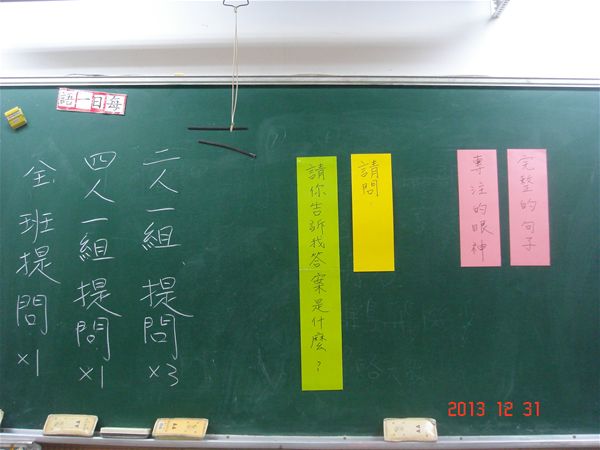 完整的句子
專注的眼神
請問，
請你告訴我答案是什麼？
每日一語
二人一組提問×3
四人一組提問×1
全班提問×1
2013 12 31